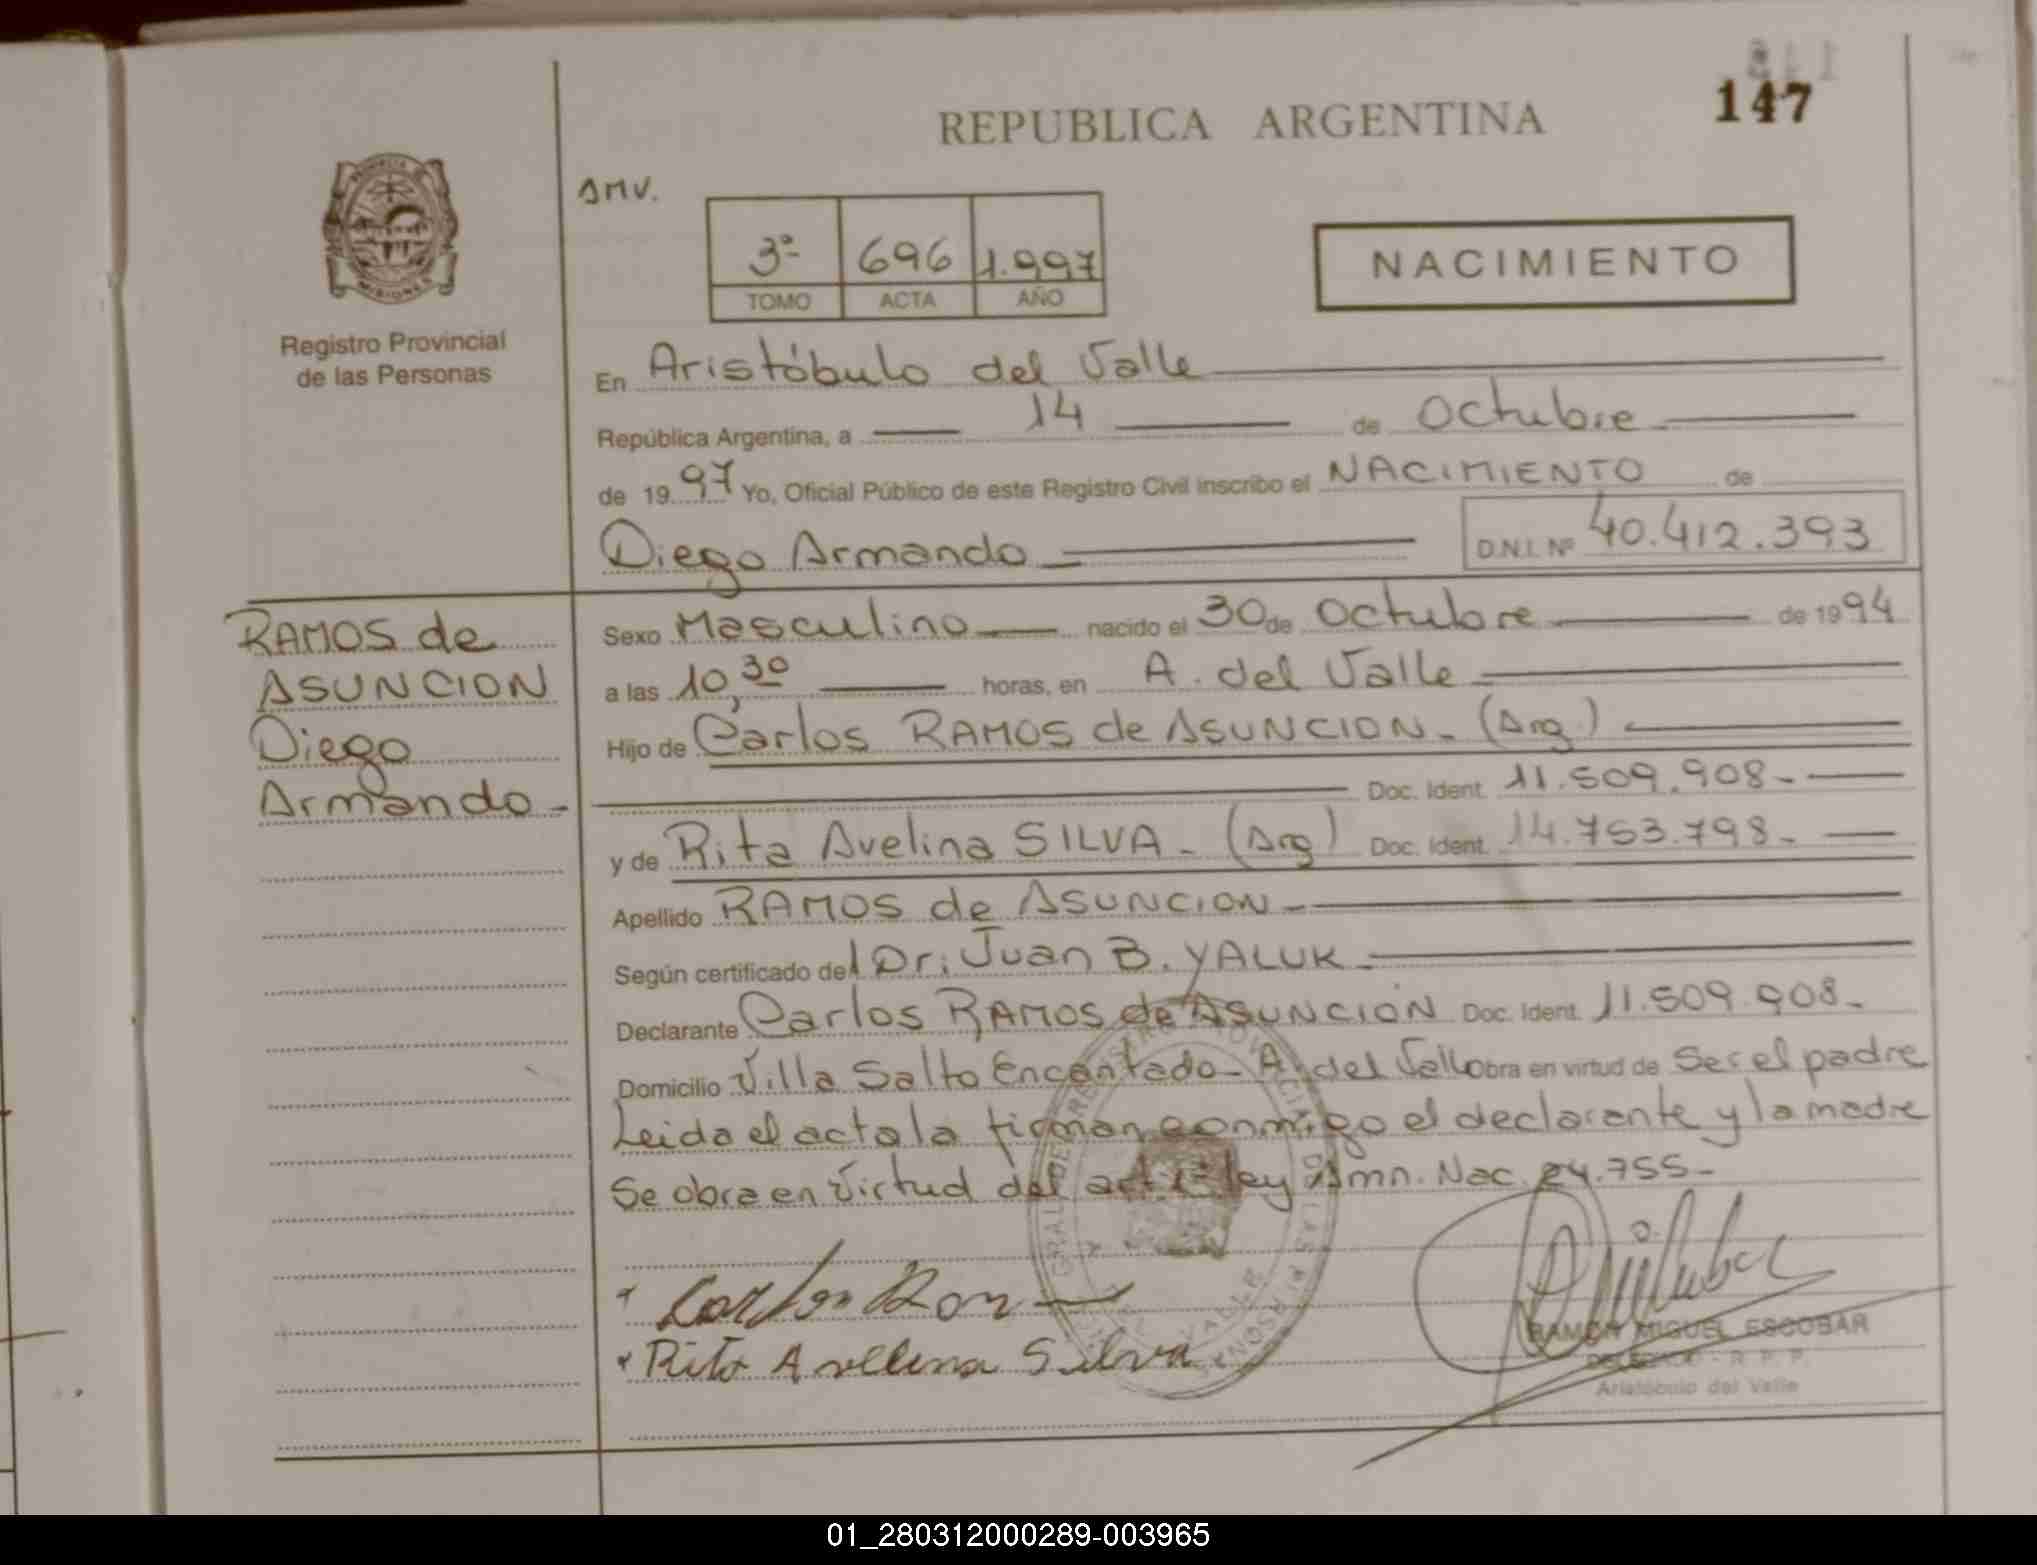 147
REPUBLICA ARGENTINA
SMV.
3º 696 1.997
TOMO ACTA AÑO
NACIMIENTO
Registro Provincial
de las Personas
En Aristóbulo del Valle
República Argentina, a 14 de Octubre
de 1997 Yo, Oficial Público de este Registro Civil inscribo el NACIMIENTO de
Diego Armando D.N.I. Nº 40.412.393
RAMOS de
ASUNCION
Diego
Armando-
Sexo Masculino nacido el 30 de Octubre de 1994
a las 10,30 horas, en A. del Valle
Hijo de Carlos RAMOS de ASUNCION- (Arg)
Doc. Ident. 11.509.908-
y de Rita Avelina SILVA- (Arg) Doc. Ident. 14.753.798-
Apellido RAMOS de ASUNCION-
Según certificado del Dr. Juan B. YALUK-
Declarante Carlos RAMOS de ASUNCION Doc. Ident. 11.509.908-
Domicilio Villa Salto Encantado- A. del Valle Obra en virtud de Ser el padre
Leida el acta la firman conmigo el declarante y la madre
Se obra en Virtud del ley Amn. Nac. 24.755-
Rita Avelina Silva
RAMON MIGUEL ESCOBAR
DELEGADO - R. P. P.
Aristóbulo del Valle
01_280312000289-003965